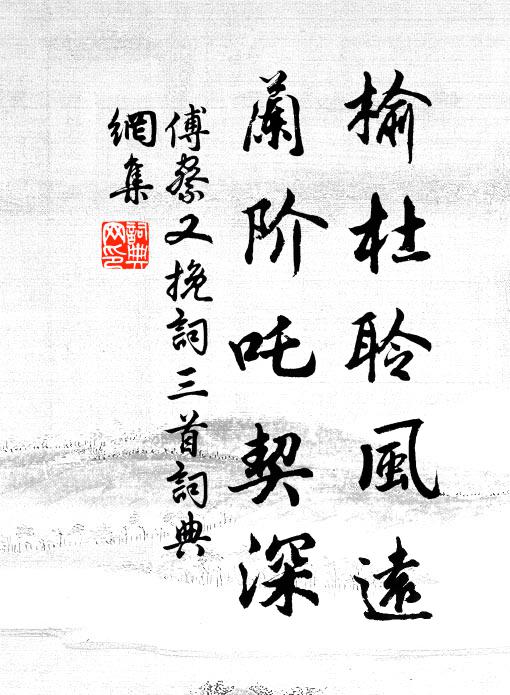 榆杜聆風遠
蘭阶吒契深
傅察又挽詞三首詞典
網集
詞典
网印